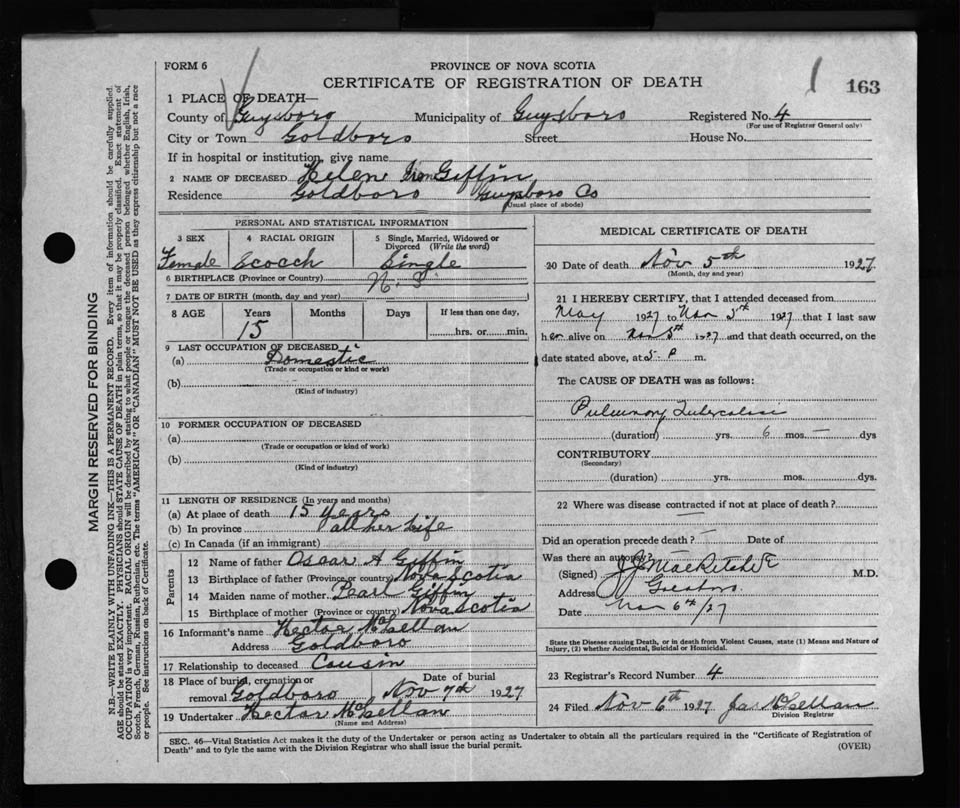 FORM 6
PROVINCE OF NOVA SCOTIA
CERTIFICATE OF REGISTRATION OF DEATH
163
1 PLACE OF DEATH—
County of Guysboro Municipality of Guysboro Registered No. 4
(For use of Registrar General only)
City or Town Goldboro Street House No.
If in hospital or institution, give name
2 NAME OF DECEASED Helen Giffin
Residence Goldboro Guysboro Co
(Usual place of abode)
PERSONAL AND STATISTICAL INFORMATION
3 SEX 4 RACIAL ORIGIN 5 Single, Married, Widowed or Divorced (Write the word)
Female Scotch Single
6 BIRTHPLACE (Province or Country) N. S.
7 DATE OF BIRTH (month, day and year)
8 AGE Years Months Days If less than one day,
15 hrs. or min.
9 LAST OCCUPATION OF DECEASED
(a) Domestic
(Trade or occupation or kind or work)
(b)
(Kind of industry)
10 FORMER OCCUPATION OF DECEASED
(a)
(Trade or occupation or kind of work)
(b)
(Kind of industry)
11 LENGTH OF RESIDENCE (In years and months)
(a) At place of death 15 years
(b) In province all her life
(c) In Canada (if an immigrant)
Parents
12 Name of father Oscar A Giffin
13 Birthplace of father (Province or country) Nova Scotia
14 Maiden name of mother Pearl Giffin
15 Birthplace of mother (Province or country) Nova Scotia
16 Informant's name Hector McLellan
Address Goldboro
17 Relationship to deceased Cousin
18 Place of burial, cremation or removal Goldboro
Date of burial Nov 7th 1927
19 Undertaker Hector McLellan
(Name and Address)
MEDICAL CERTIFICATE OF DEATH
20 Date of death Nov 5th 1927
(Month, day and year)
21 I HEREBY CERTIFY, that I attended deceased from
May 1927 to Nov 5th 1927 that I last saw
her alive on Nov 5th 1927 and that death occurred, on the
date stated above, at 5 P m.
The CAUSE OF DEATH was as follows:
Pulmonary Tuberculosis
(duration) yrs. 6 mos. — dys
CONTRIBUTORY
(Secondary)
(duration) yrs. mos. dys.
22 Where was disease contracted if not at place of death?
—
Did an operation precede death? — Date of
Was there an autopsy?
(Signed) MacRitchie M.D.
Address Goldboro
Date Nov 6th/27
State the Disease causing Death, or in death from Violent Causes, state (1) Means and Nature of
Injury, (2) whether Accidental, Suicidal or Homicidal.
23 Registrar's Record Number 4
24 Filed Nov 6th 1927 Jas McLellan
Division Registrar
SEC. 46—Vital Statistics Act makes it the duty of the Undertaker or person acting as Undertaker to obtain all the particulars required in the "Certificate of Registration of
Death" and to fyle the same with the Division Registrar who shall issue the burial permit.
(OVER)
MARGIN RESERVED FOR BINDING
N.B.—WRITE PLAINLY WITH UNFADING INK—THIS IS A PERMANENT RECORD. Every item of information should be carefully supplied.
AGE should be stated EXACTLY. PHYSICIANS should STATE CAUSE OF DEATH in plain terms, so that it may be properly classified. Exact statement of
OCCUPATION is very important. RACIAL ORIGIN will be described by stating to what people or tongue the deceased person belonged whether English, Irish,
Scotch, French, German, Russian, Ruthenian, etc. The terms "AMERICAN" OR "CANADIAN" MUST NOT BE USED as they express citizenship but not a race
or people. See instructions on back of Certificate.